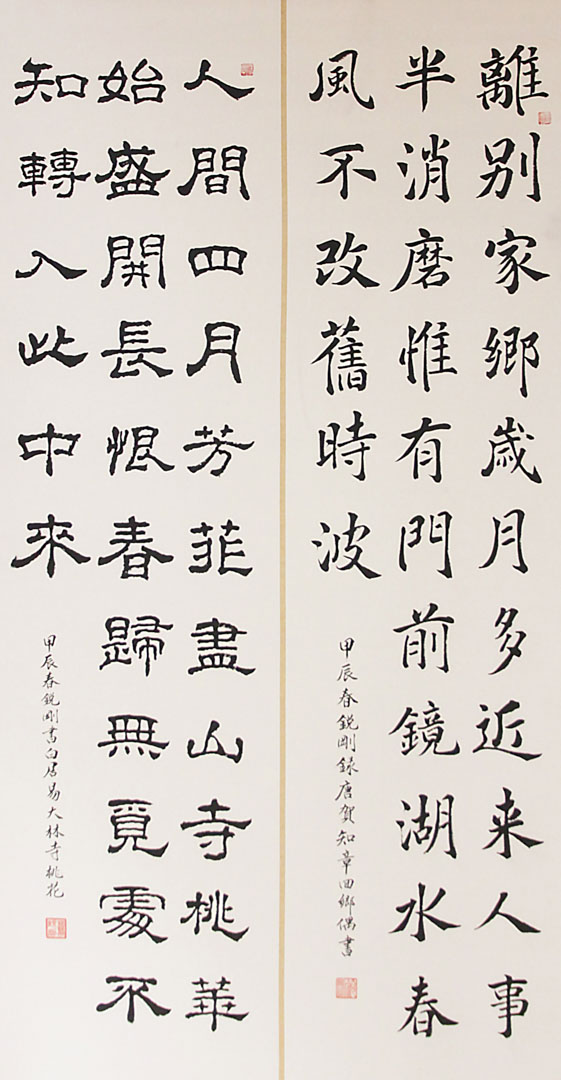 離別家鄉歲月多近来人事
半消磨惟有門前鏡湖水春
風不改舊時波
甲辰春鋭剛録唐賀知章回鄉偶書
人間四月芳菲盡山寺桃華
始盛開長恨春歸無覓處不
知轉入此中來
甲辰春鋭剛書白居易大林寺桃花